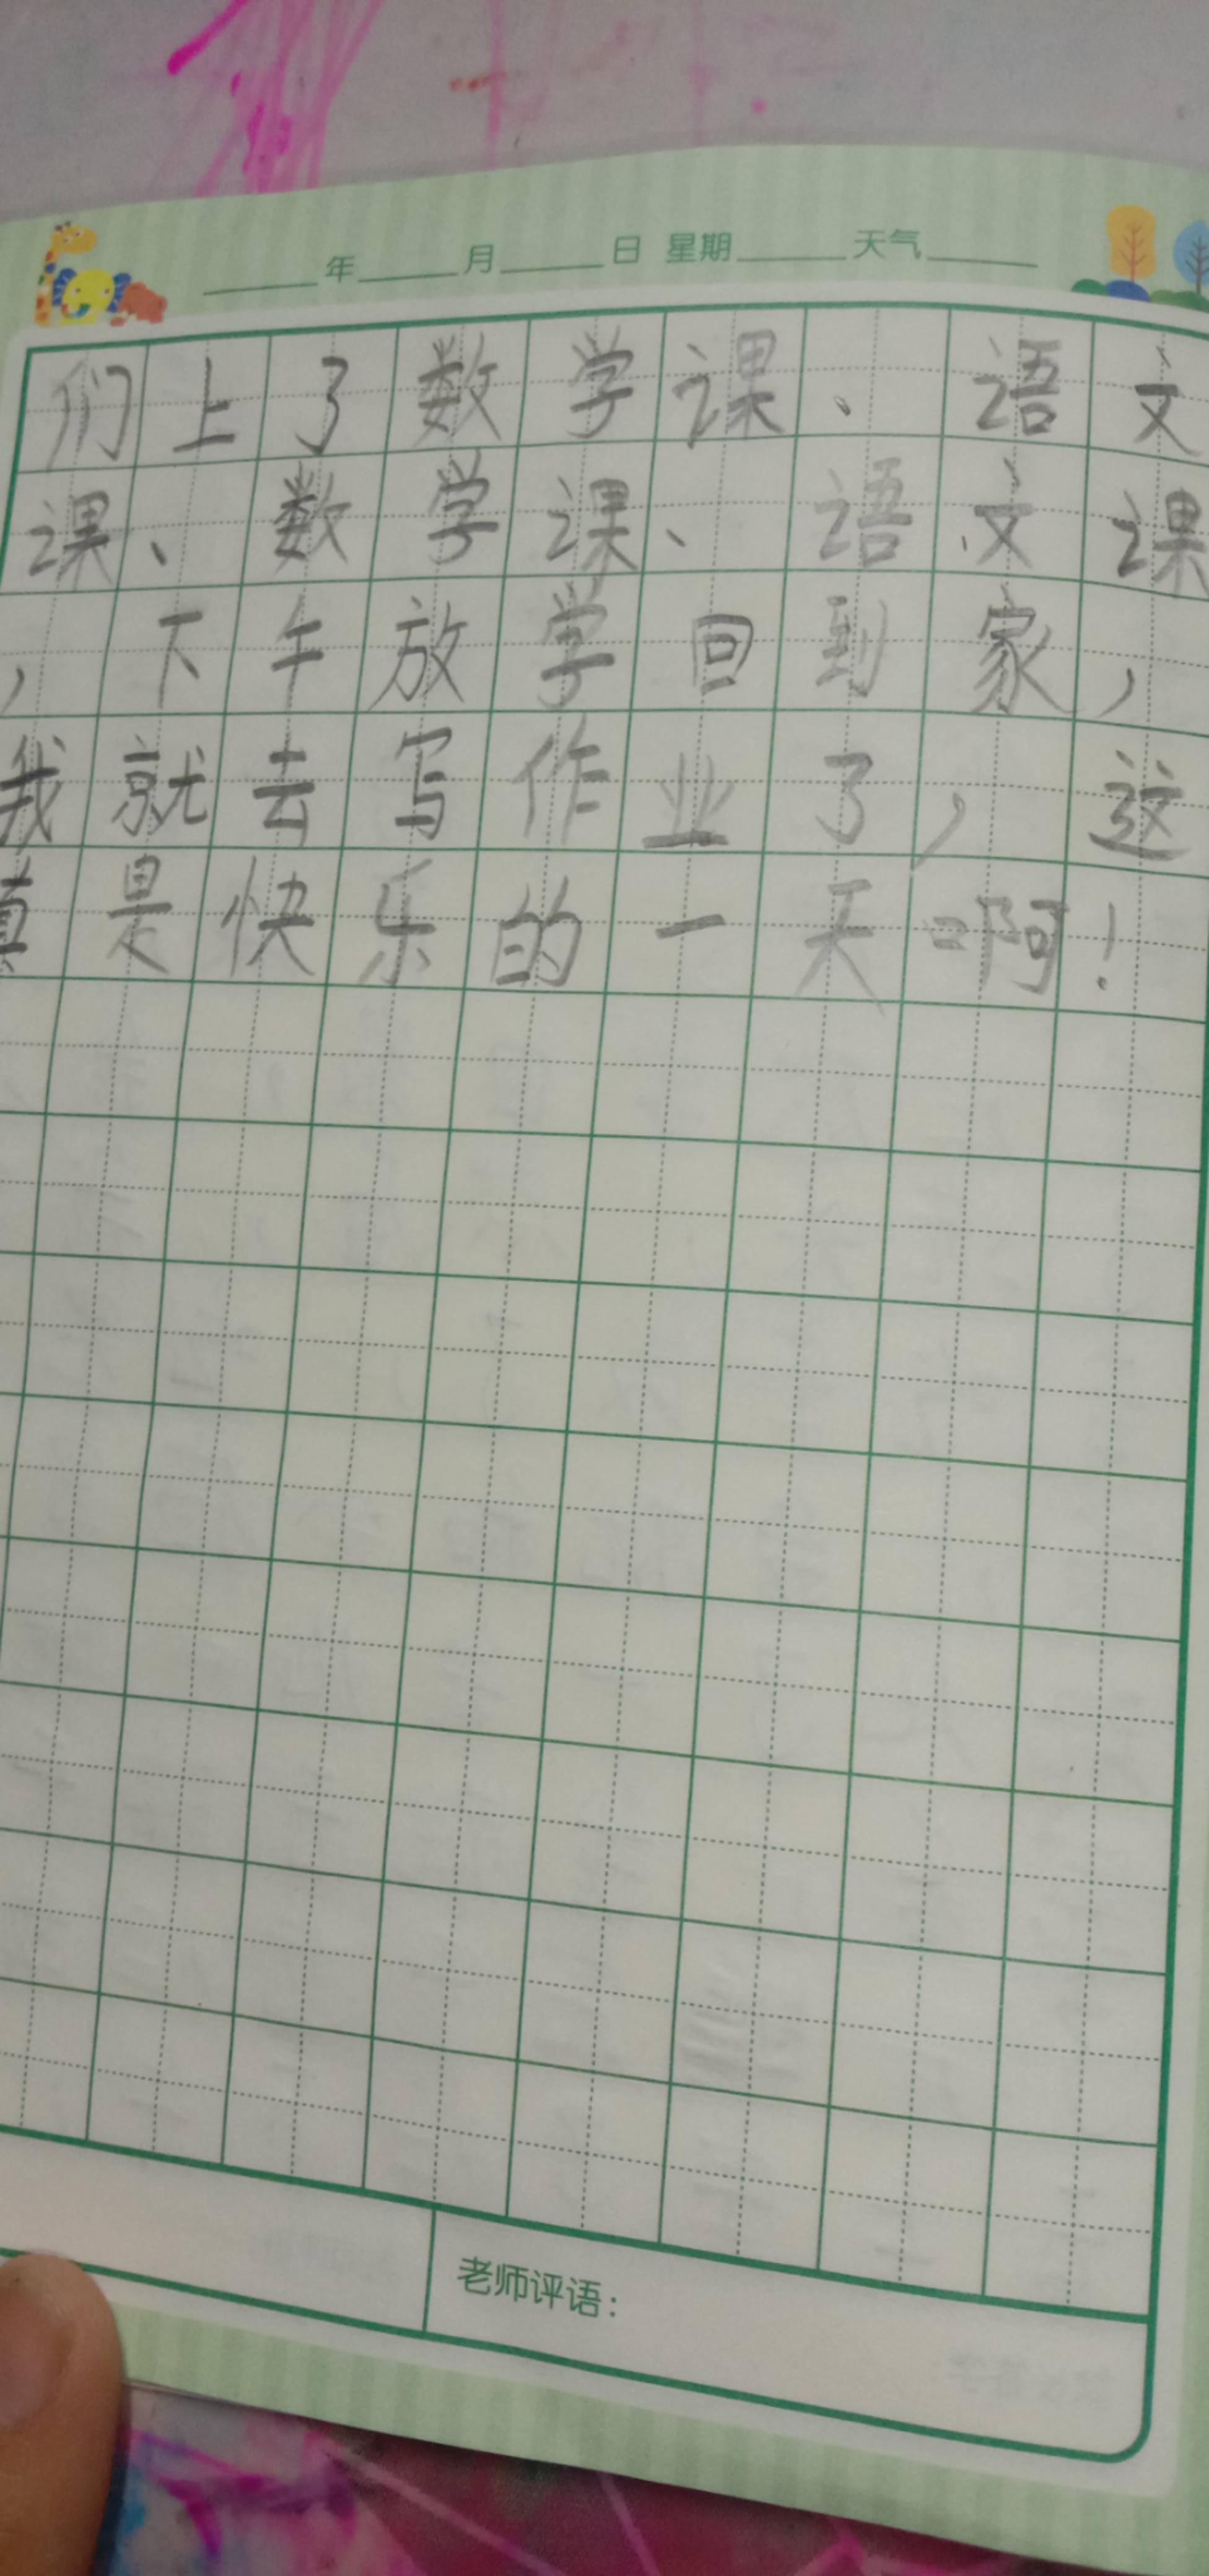 年 月 日 星期 天气
们上了数学课、语文
课、数学课、语文课
，下午放学回到家，
我就去写作业了，这
真是快乐的一天啊！
老师评语：